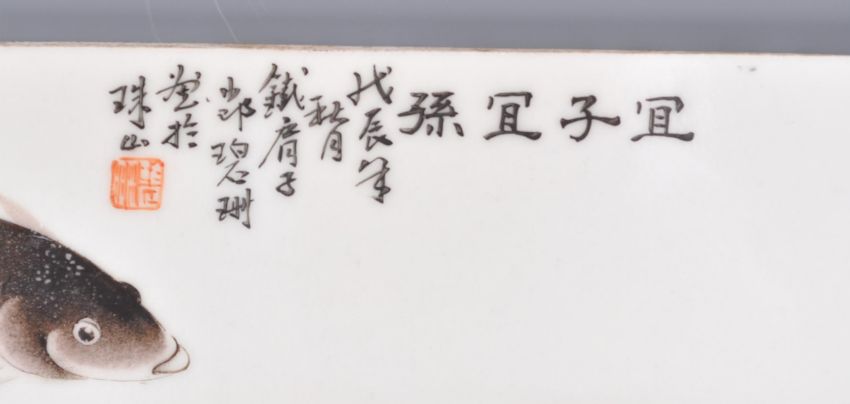 宜子宜孫
戊辰年
秋月
鐵肩子
鄧碧珊
畫於
珠山